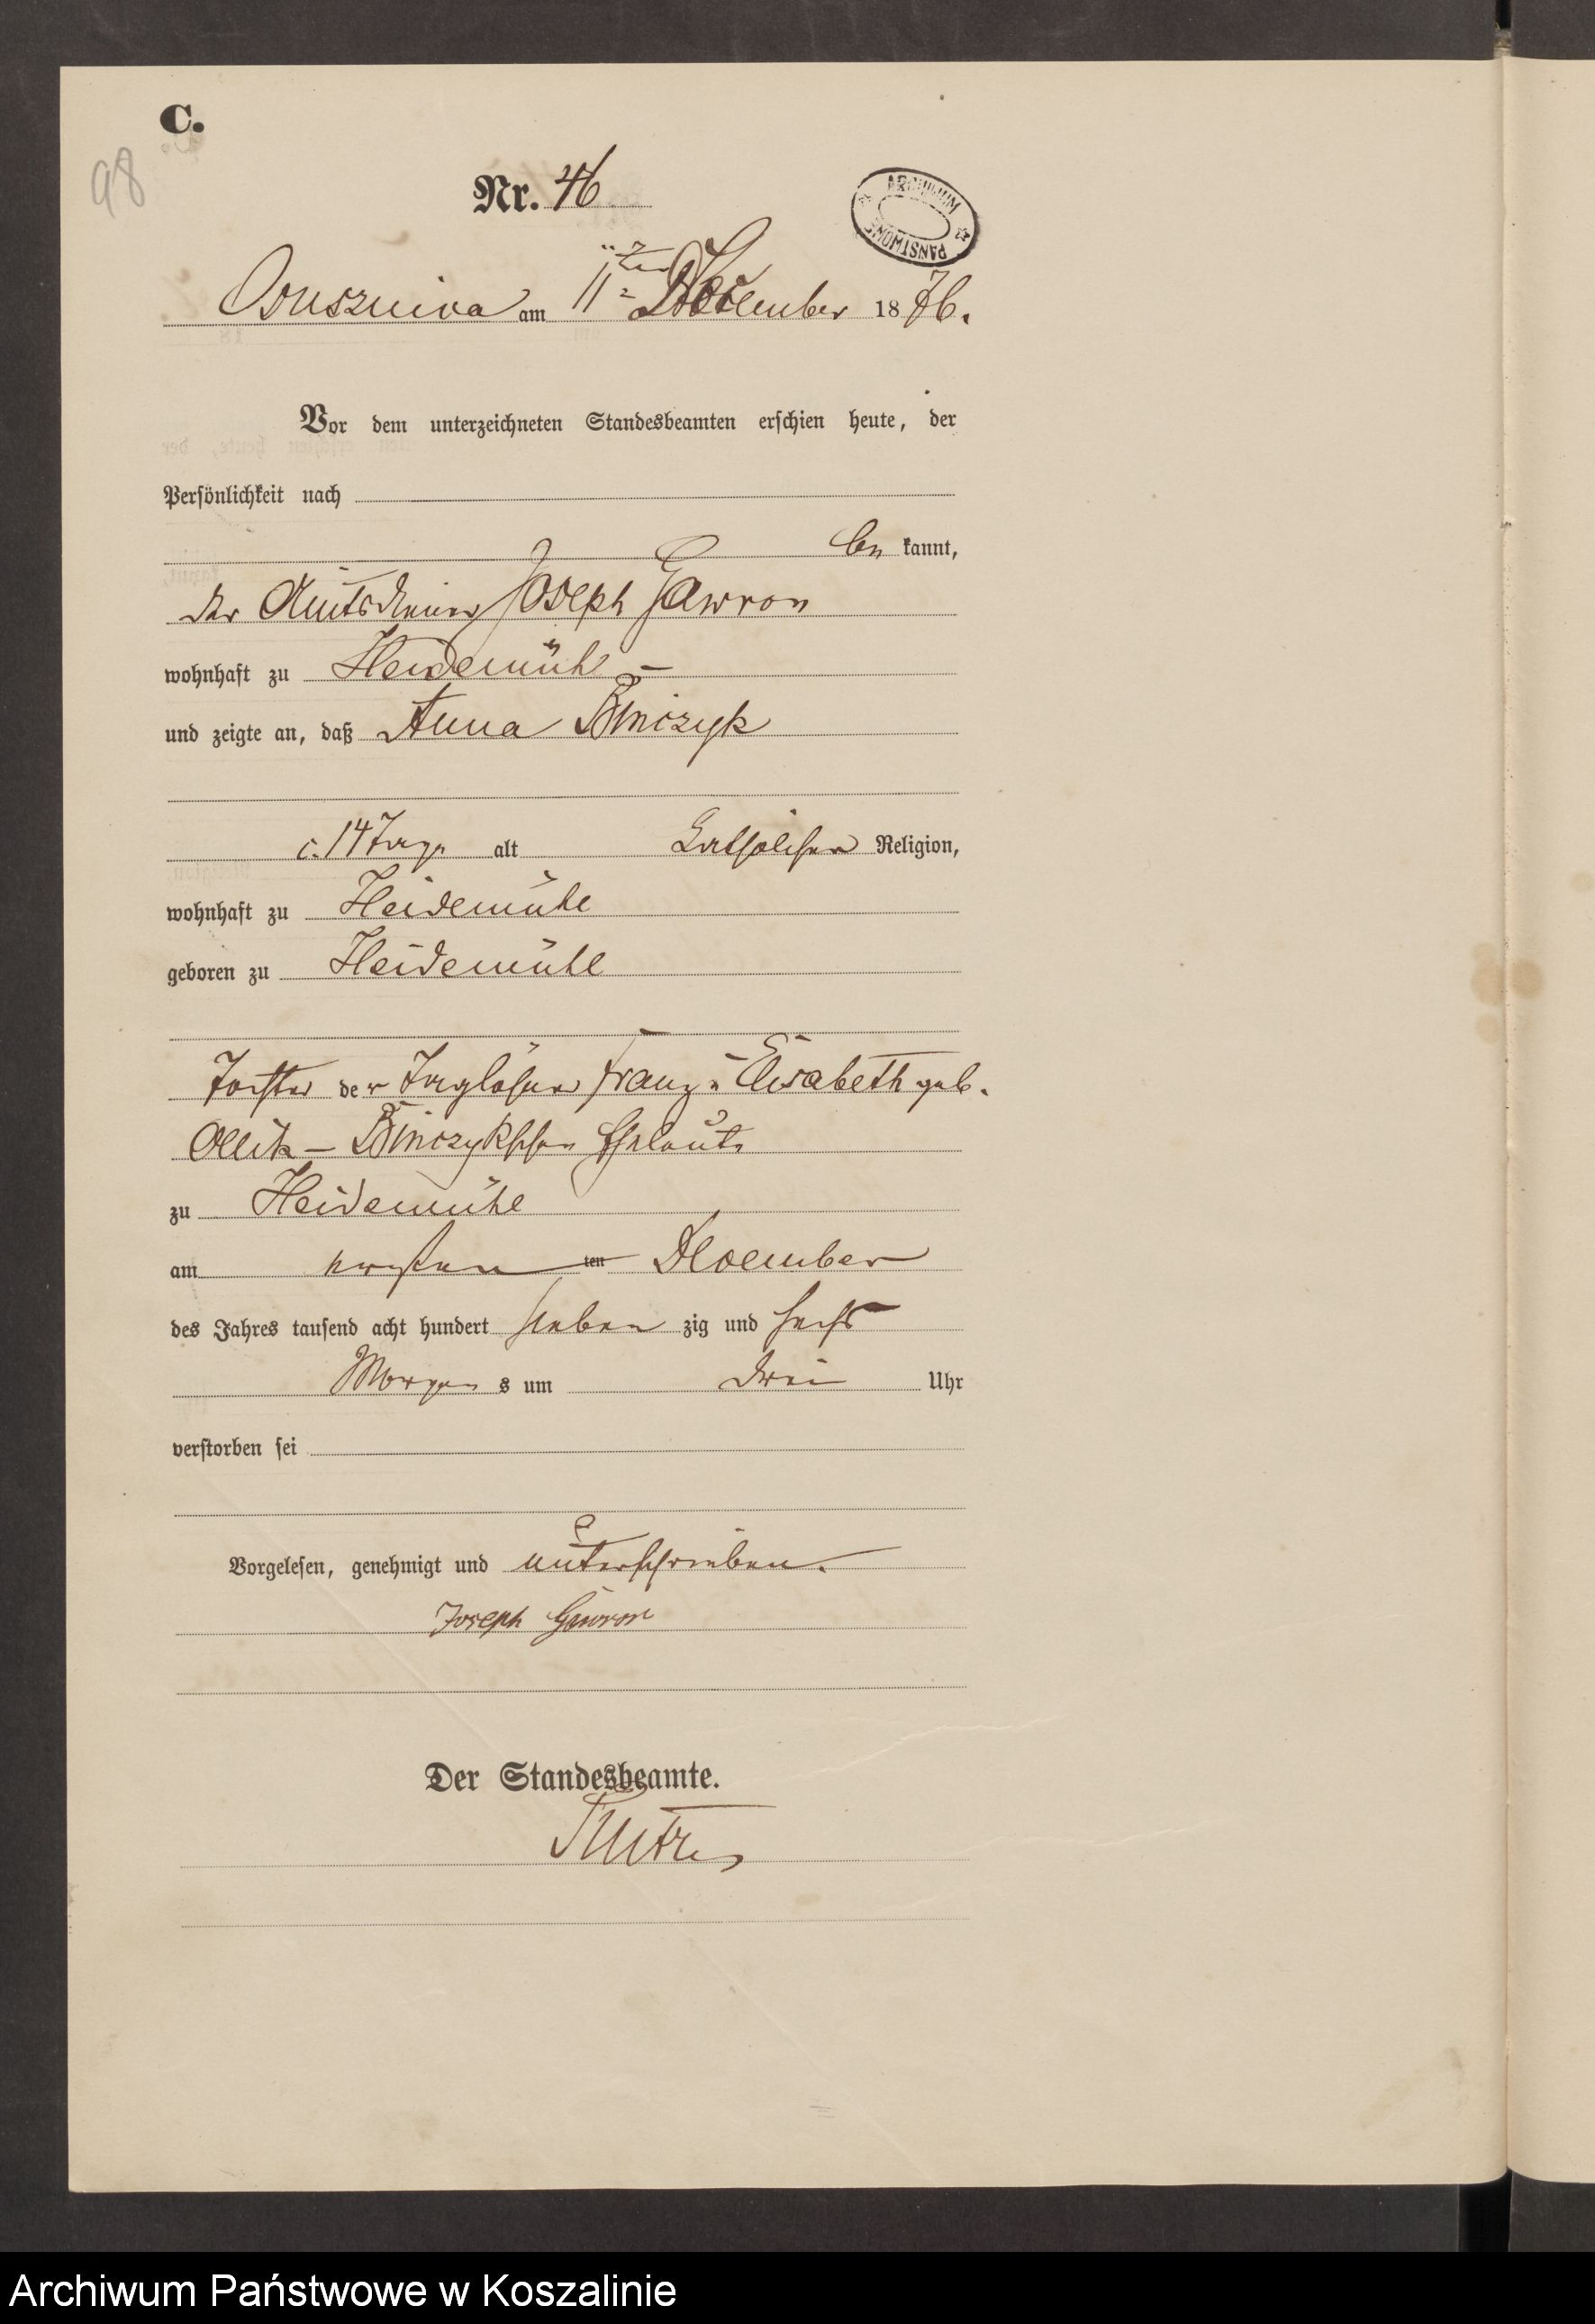 C.
98
Nr. 46
ARCHIWUM PAŃSTWOWE
Ossusznica am 11ten December 1876.
Vor dem unterzeichneten Standesbeamten erschien heute, der
Persönlichkeit nach
be kannt,
der Amtsdiener Joseph Gawron
wohnhaft zu Heidemühl
und zeigte an, daß Anna Binczyk
c. 14 Tage alt katholischer Religion,
wohnhaft zu Heidemühl
geboren zu Heidemühl
Tochter der Taglöhner Franz u Elisabeth geb.
Ollik - Binczykschen Eheleute
zu Heidemühl
am ersten ten December
des Jahres tausend acht hundert sieben zig und sechs
Morgen s um drei Uhr
verstorben sei
Vorgelesen, genehmigt und unterschrieben.
Joseph Gawron
Der Standesbeamte.
Archiwum Państwowe w Koszalinie